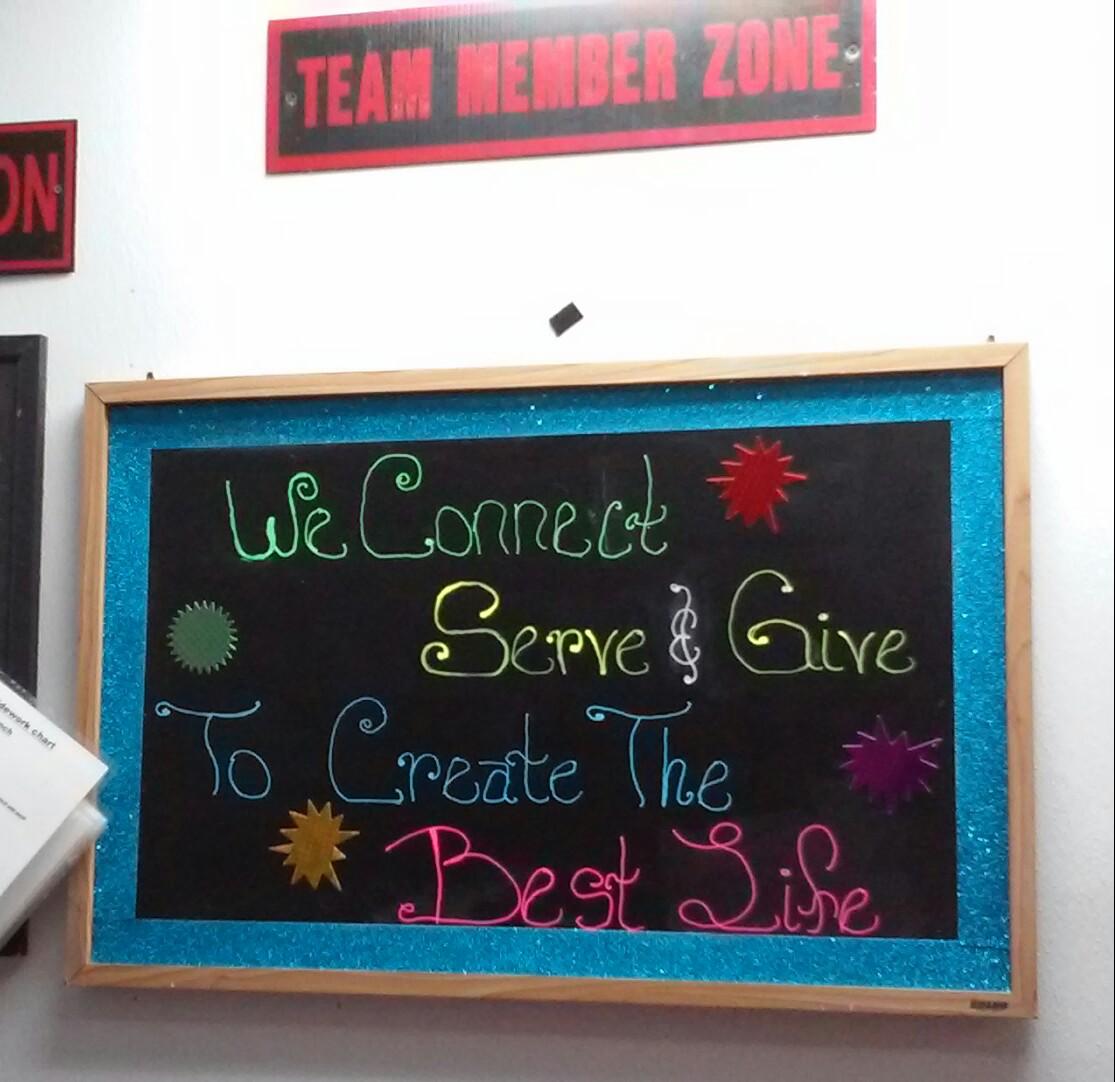 TEAM MEMBER ZONE
ON
We Connect
Serve & Give
To Create The
Best Life
chart